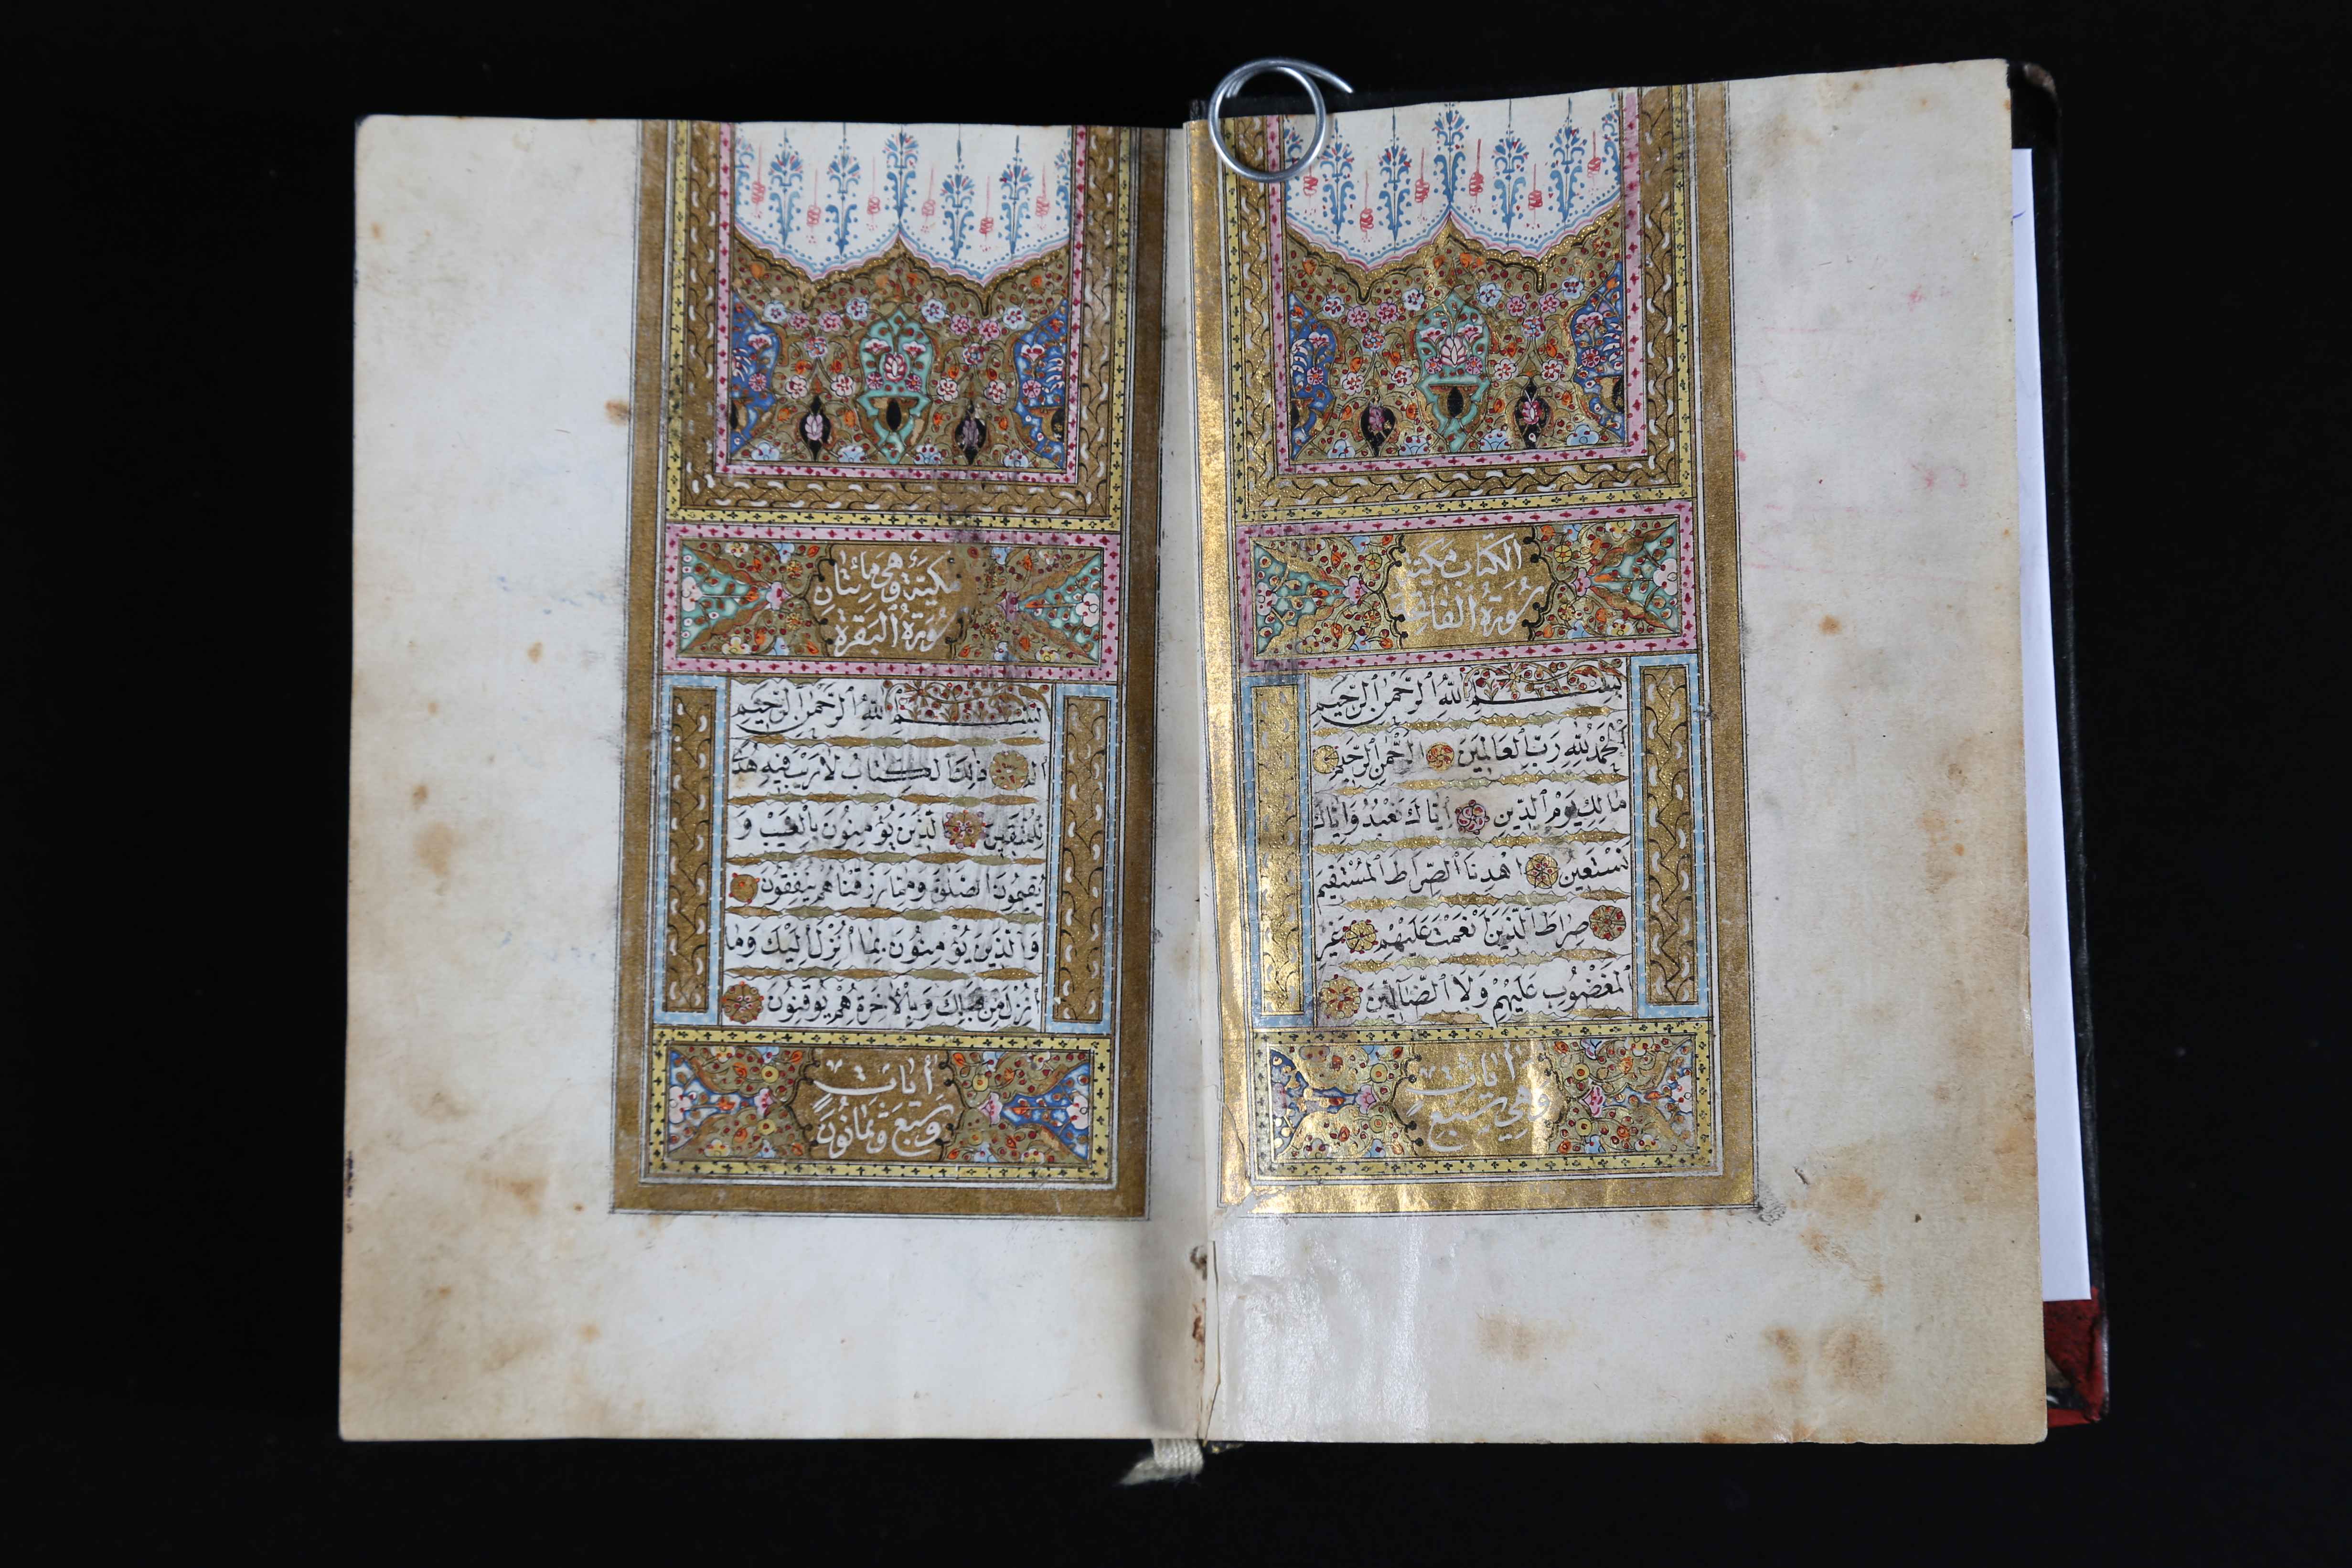 الكتاب مكية
سورة الفاتحة
بسم الله الرحمن الرحيم
الحمد لله رب العالمين الرحمن الرحيم
مالك يوم الدين اياك نعبد واياك
نستعين اهدنا الصراط المستقيم
صراط الذين انعمت عليهم غير
المغضوب عليهم ولا الضالين
أيات
وهي سبع
مكية وهي مائتان
سورة البقرة
بسم الله الرحمن الرحيم
الم ذلك الكتاب لا ريب فيه هدى
للمتقين الذين يؤمنون بالغيب و
يقيمون الصلوة ومما رزقناهم ينفقون
والذين يؤمنون بما انزل اليك وما
انزل من قبلك وبالاخرة هم يوقنون
أيات
وسبع وثمانون